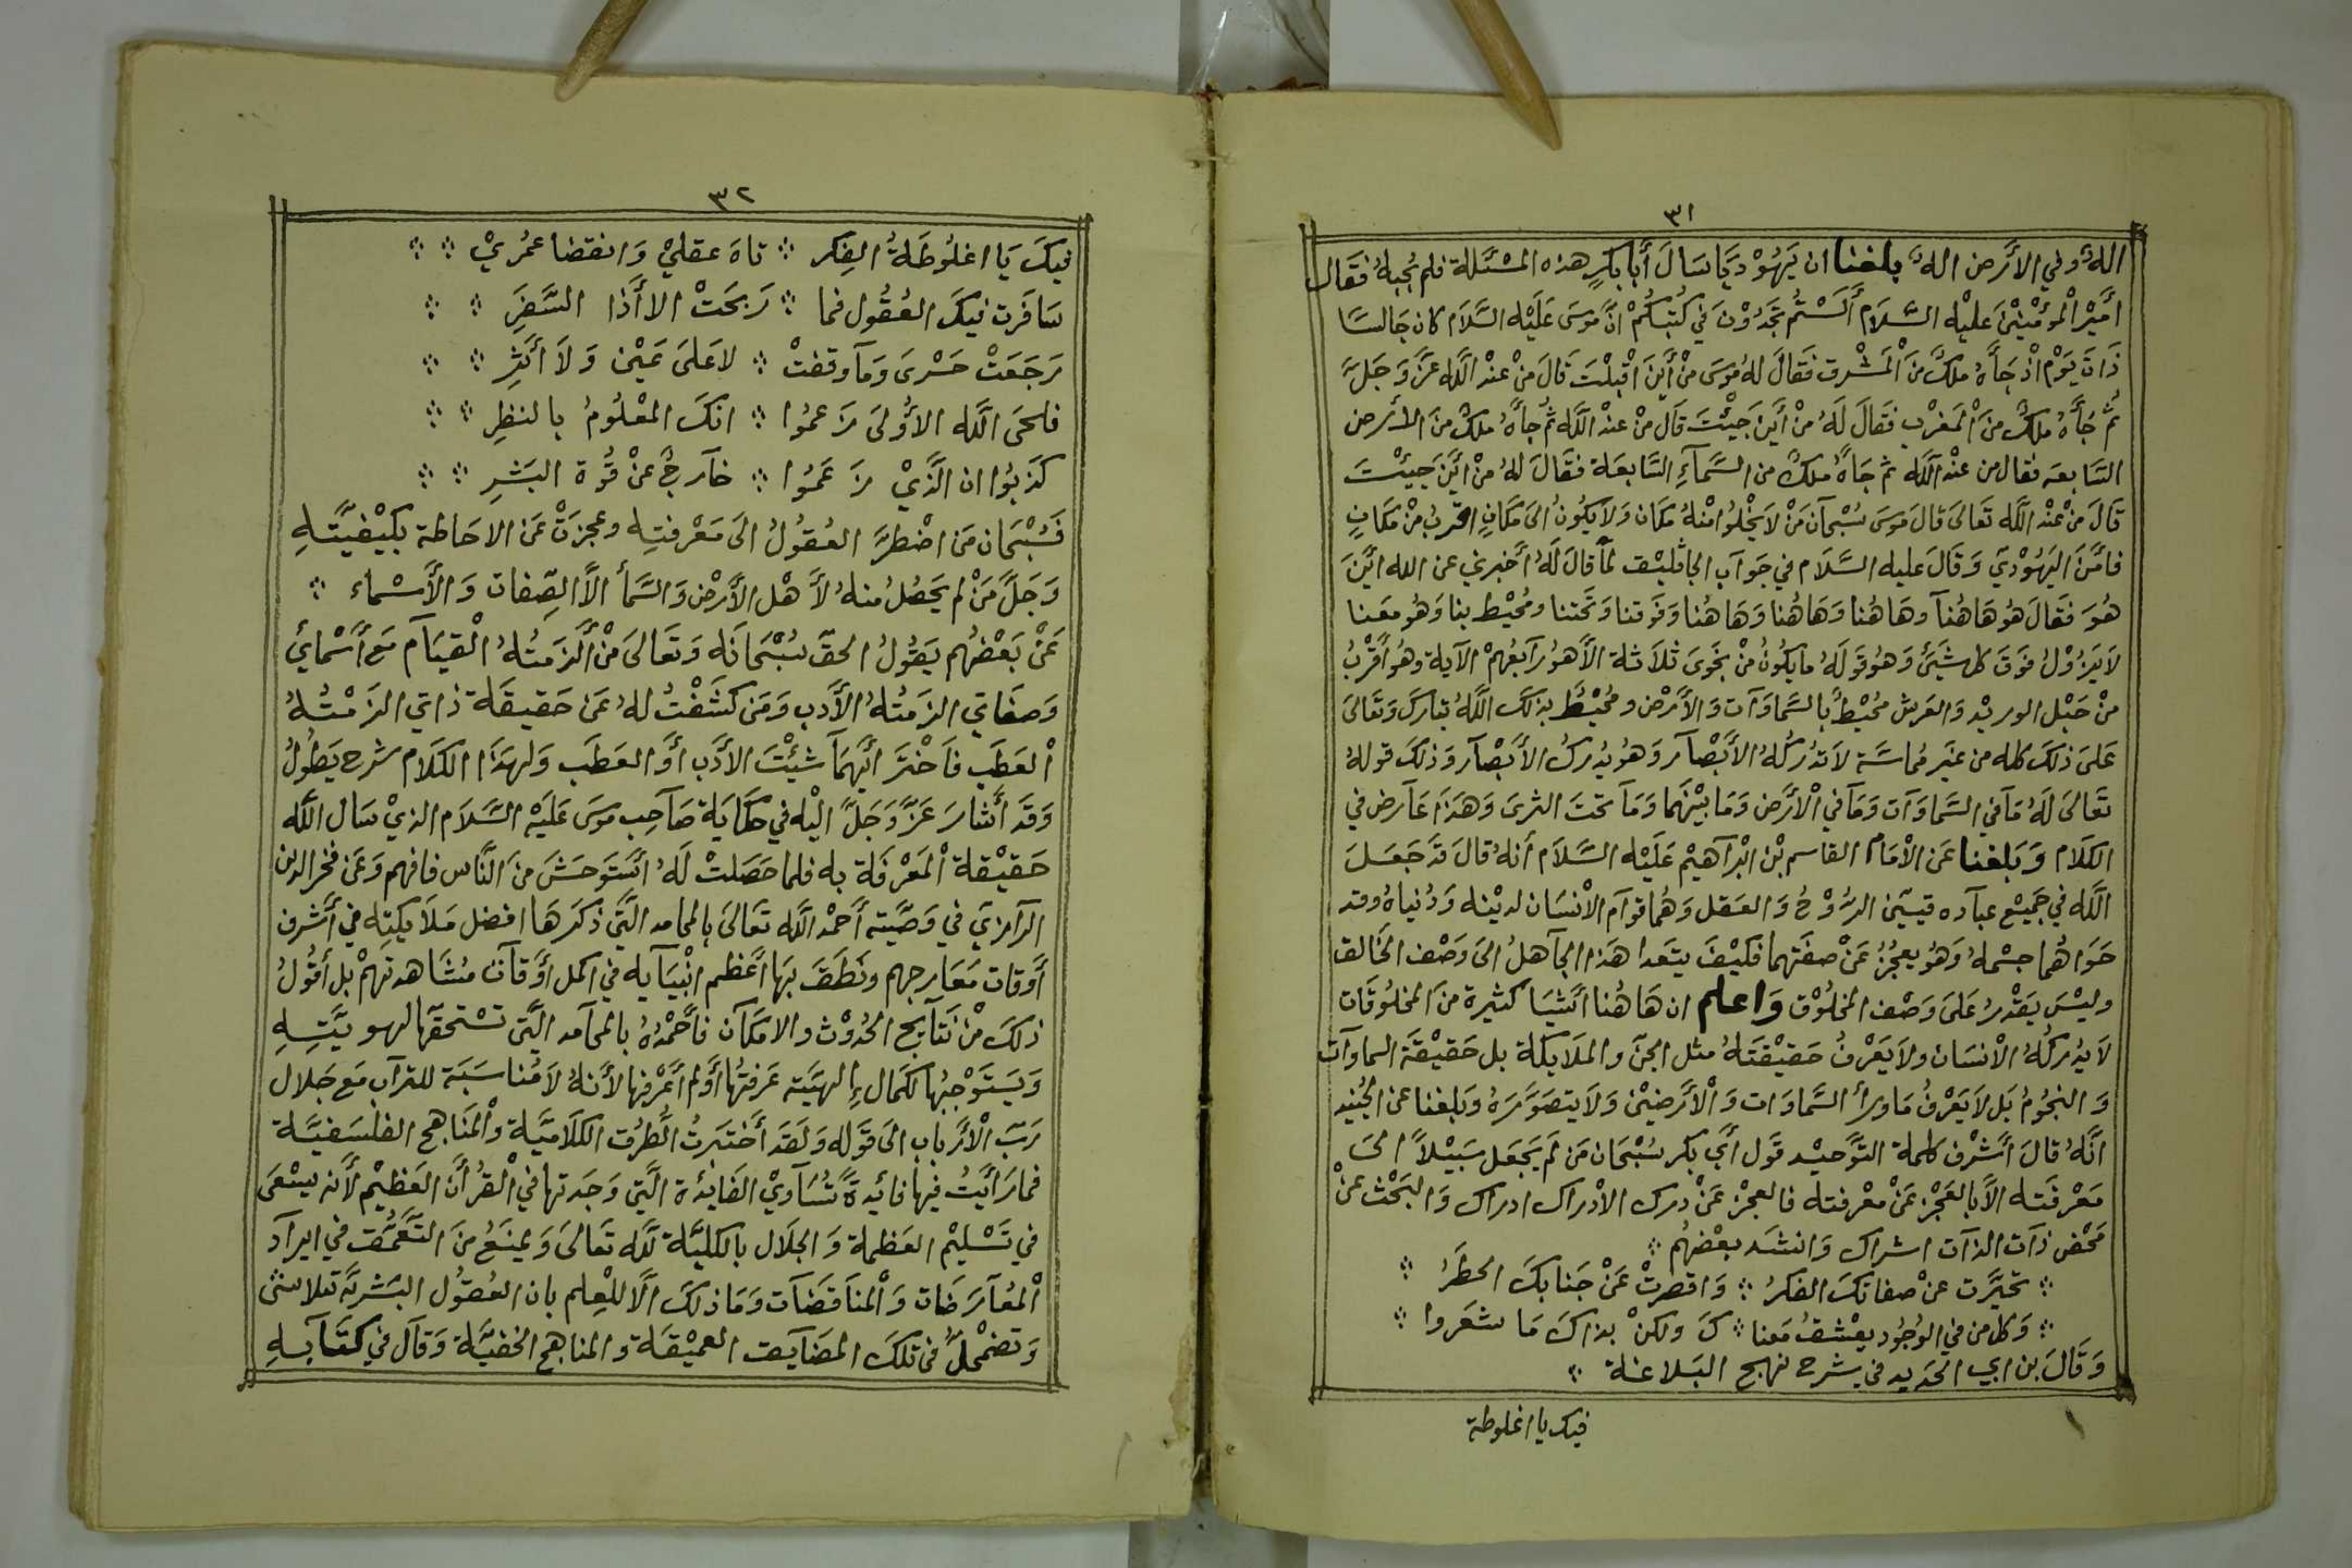 ٣١
الله وفي الأرض اله بلغنا ان يهوديا سال أبا بكر هذه المسئلة فلم يجبه فقال
أمير المؤمنين عليه السلام ألستم تجدون في كتبكم ان موسى عليه السلام كان جالسا
ذات يوم اذ جأه ملك من المشرق فقال له موسى من أين اقبلت قال من عند الله عز وجل
ثم جأه ملك من المغرب فقال له من أين جيئت قال من عند الله ثم جأه ملك من الارض
السابعه فقال من عند الله ثم جاه ملك من السمآء السابعة فقال له من أين جيئت
قال من عند الله تعالى قال موسى سبحآن من لا يخلوا منه مكان ولا يكون الى مكان اقرب من مكان
فامن اليهودي وقال عليه السلام في جوآب الجاثليق لمآ قال له أخبرني عن الله أين
هو فقال هو هاهنآ وهاهنا وهاهنا وهاهنا وفوقنا وتحتنا ومحيط بنا وهو معنا
لا يزول فوق كل شيئ وهو قوله ما يكون من نجوى ثلاثة الأ هو رآبعهم الآية وهو أقرب
من حبل الوريد والعرش محيط بالسماوآت والأرض ومحيط بذلك الله تبارك وتعالى
على ذلك كله من غير مماسة لا تدركه الأبصآر وهو يدرك الأبصآر وذلك قوله
تعالى له مآ في السماوآت ومآ في الأرض وما بينهما ومآ تحت الثرى وهذا عآرض في
الكلام وبلغنا عن الأمام القاسم بن ابرآهيم عليه السلام أنه قال قد جعل
الله في جميع عبآده قيسين الروح والعقل وهما قوآم الأنسان لدينه ودنياه وقد
حواهما جسمه وهو يعجز عن صفتهما فكيف يتعدا هذا الجآهل الى وصف الخالق
وليس يقدر على وصف المخلوق واعلم ان هاهنا أشيا كثيرة من المخلوقات
لا يدركه الأنسان ولا يعرف حقيقته مثل الجن والملايكة بل حقيقة السماوآت
والنجوم بل لا يعرف ما ورأ السماوات والأرضين ولا يتصوره وبلغنا عن الجنيد
انه قال أشرف كلمة التوحيد قول أبي بكر سبحان من لم يجعل سبيلا الى
معرفته الأ بالعجز عن معرفته فالعجز عن درك الأدراك ادراك والبحث عن
محض ذآت الذآت اشراك وانشد بعضهم
تحيرت عن صفاتك الفكر واقصرت عن جنابك الخطر
وكل من في الوجود يعشق معنا ك ولكن بذاك ما شعروا
وقال بن ابي الحديد في شرح نهج البلاغة
فيك يا اغلوطة
٣٢
فيك يا اغلوطة الفكر تاه عقلي وانقضا عمري
سافرت فيك العقول فما ربحت الا أذا السفر
رجعت حسرى ومآ وقفت لا على عين ولا أثر
فلحى الله الأولى زعموا انك المعلوم بالنظر
كذبوا ان الذي زعموا خآرج عن قوة البشر
فسبحان من اضطر العقول الى معرفته وعجزت عن الاحاطة بكيفيته
وجل من لم يحصل منه لأهل الأرض والسمأ الأ الصفات والأسماء
عن بعضهم يقول الحق سبحانه وتعالى من ألزمته القيآم مع أسمائي
وصفاتي الزمته الأدب ومن كشفت له عن حقيقة ذاتي الزمته
العطب فآختر أيهمآ شيئت الأدب أو العطب ولهذا الكلام شرح يطول
وقد أشار عز وجل اليه في حكاية صآحب موسى عليه السلام الذي سال الله
حقيقة المعرفة به فلما حصلت له أستوحش من الناس فافهم وعن فخر الدين
الرآمزي في وصيته أحمد الله تعالى بالمحامد التي ذكرها افضل ملايكته في أشرف
أوقات معارجهم ونطق بها أعظم انبيآيه في اكمل أوقآت مشاهدتهم بل أقول
ذلك من نتآيج الحدوث والامكآن فأحمده بالمحآمد التي تستحقها لهويته
ويستوجبها لكمال إلهيته عرفتها أو لم أعرفها لأنه لا مناسبة للترآب مع جلال
رب الأرباب الى قوله ولقد أختبرت الطرق الكلامية والمناهج الفلسفية
فما رأيت فيها فائدة تساوي الفايدة التي وجدتها في القرأن العظيم لأنه يسعى
في تسليم العظمة والجلال بالكلية لله تعالى ويمنع من التعمق في ايرآد
المعآرضات والمناقضآت وما ذلك الأ للعلم بان العقول البشرية تتلاشى
وتضمحل في تلك المضآيق العميقة والمناهج الخفية وقآل في كتآبه